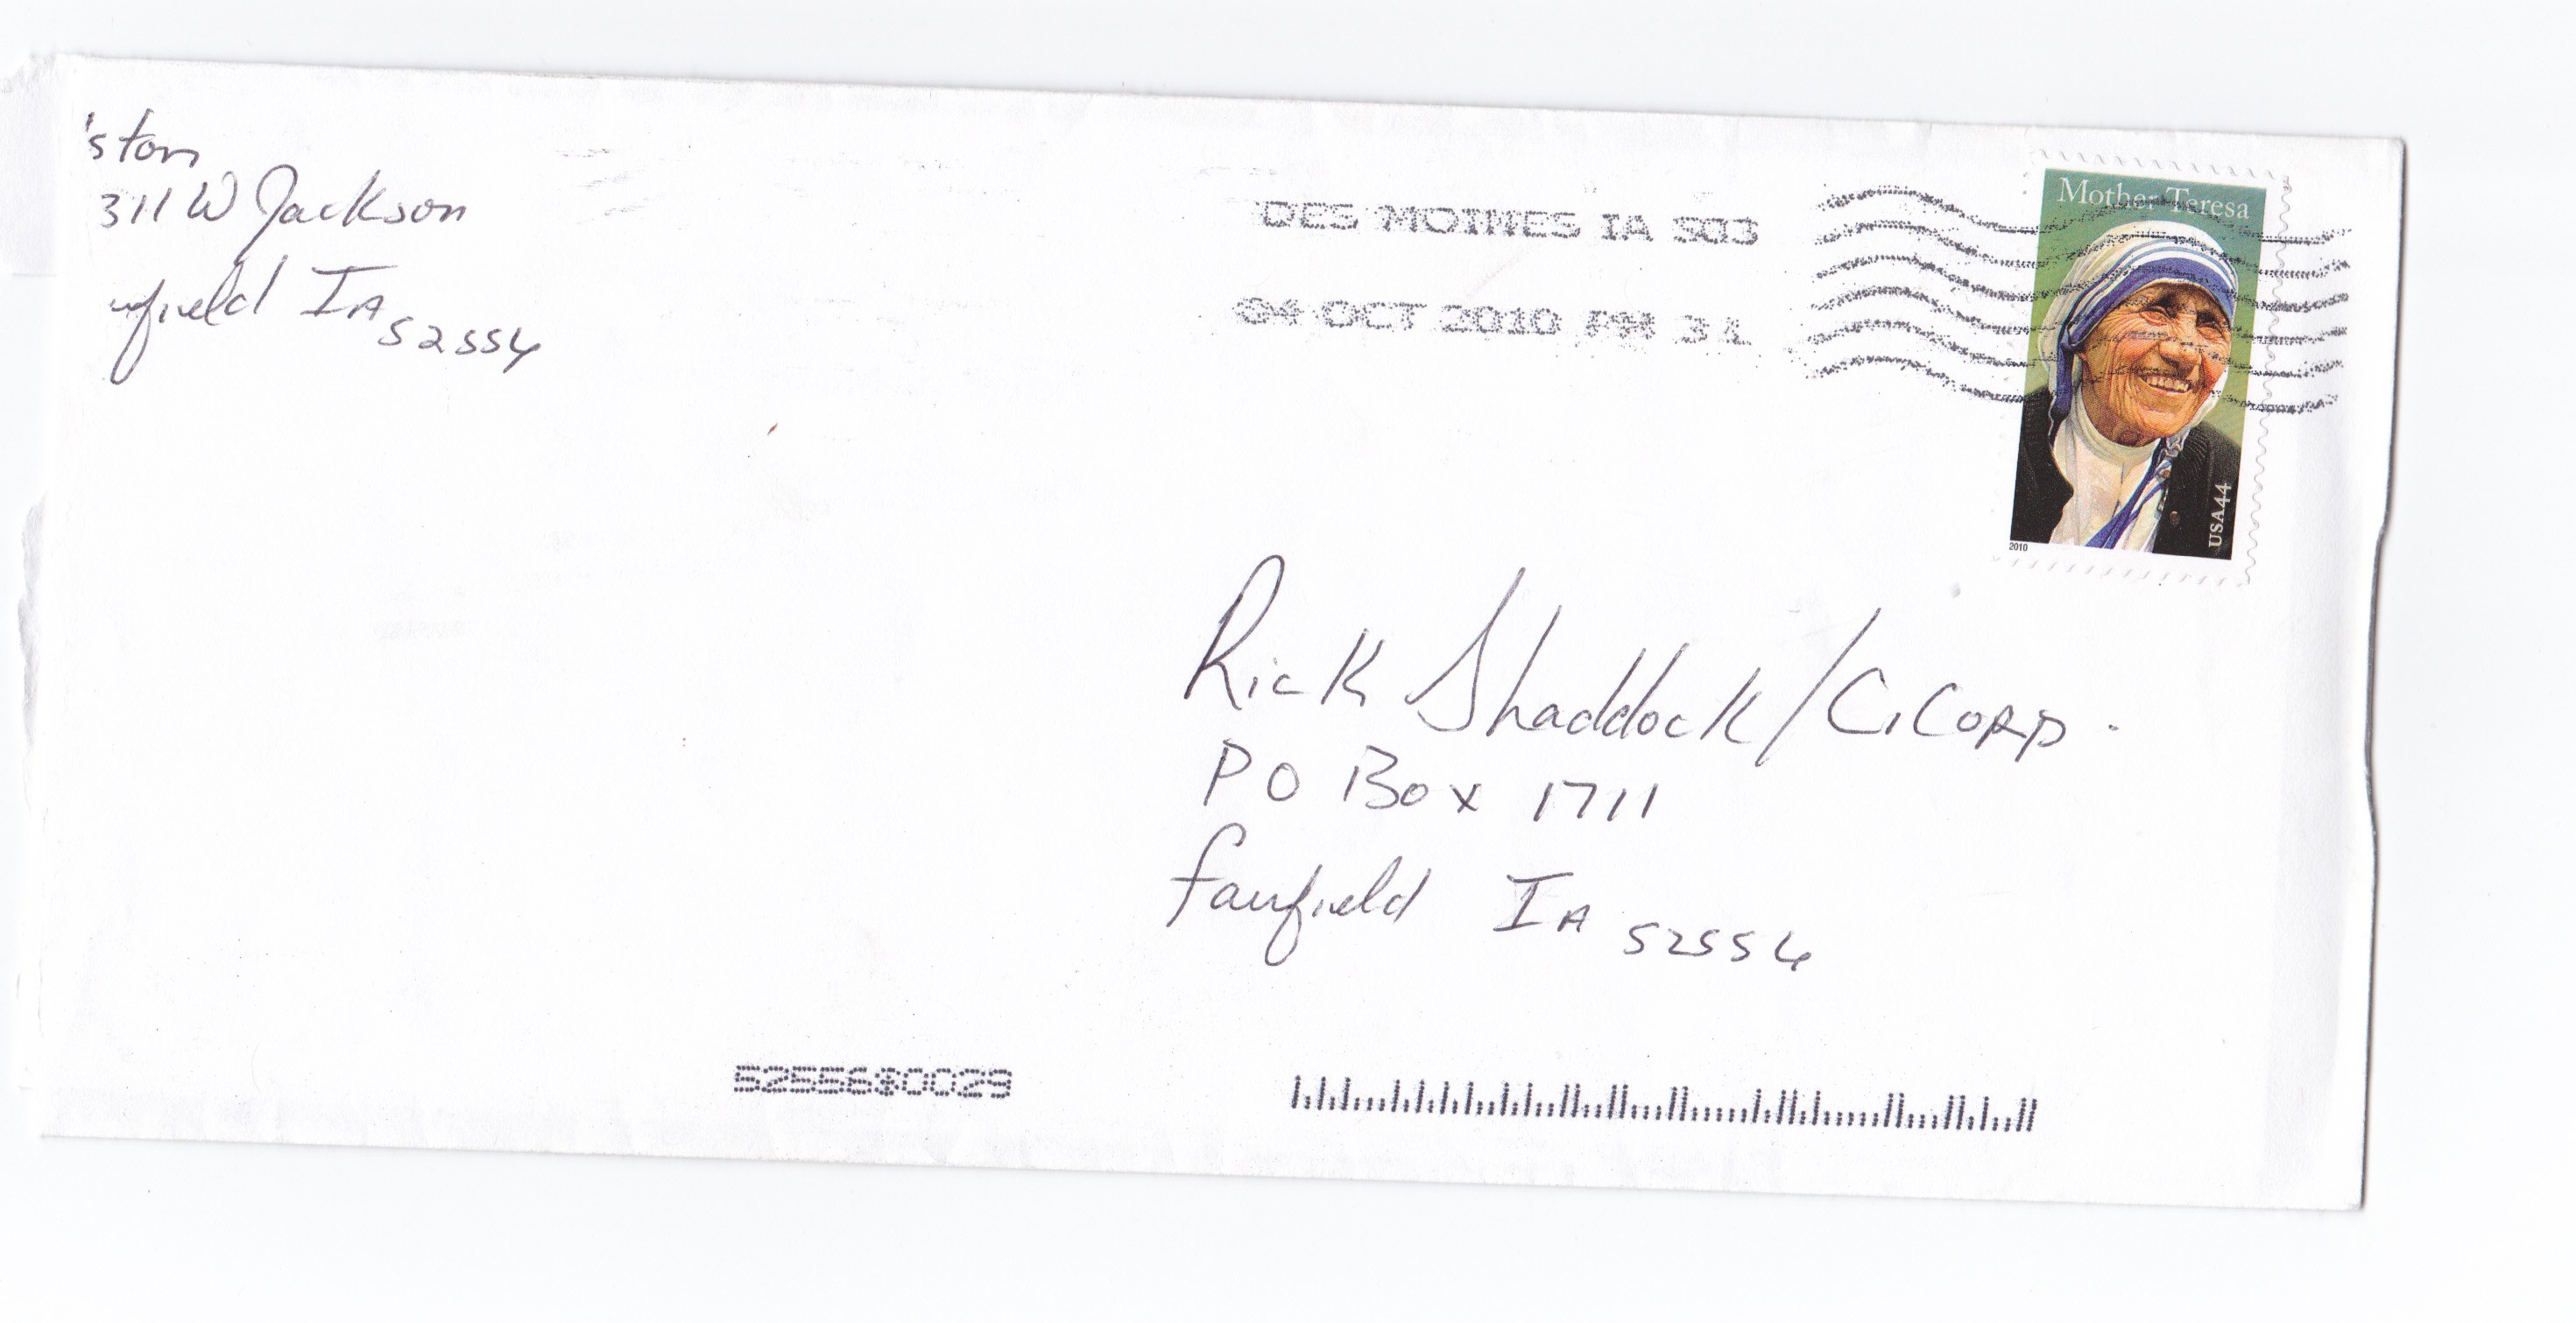 'ston
311 W Jackson
field IA 52556
DES MOINES IA 503
04 OCT 2010 PM 3 L
Mother Teresa
USA44
2010
Rick Shaddock / C, CORP.
PO Box 1711
Fairfield IA 52556
52556$0029